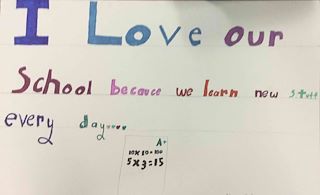 I Love our
School becauce we learn new stuff
every day....
A+
10x10=100
5x3=15